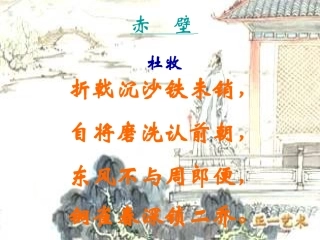 赤 壁
杜牧
折戟沉沙铁未销，
自将磨洗认前朝，
东风不与周郎便，
铜雀春深锁二乔。
三一艺术